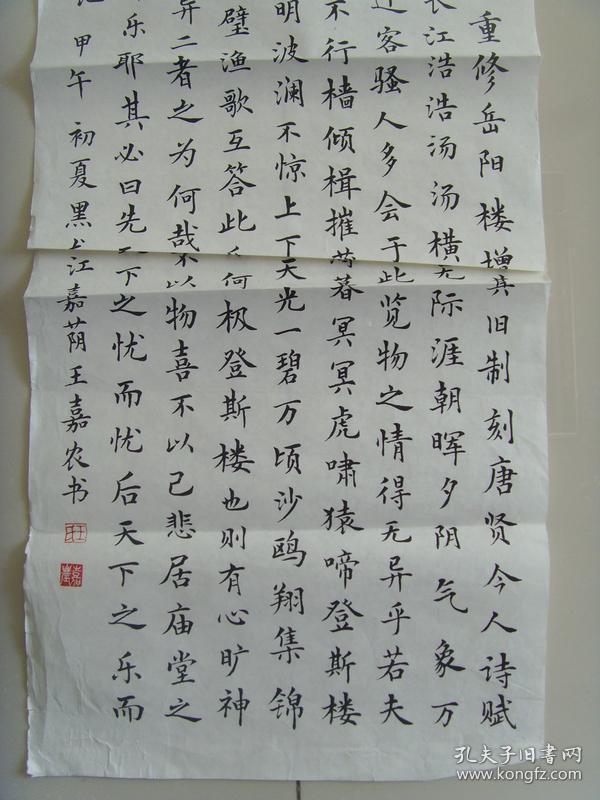 重修岳阳楼增其旧制刻唐贤今人诗赋
长江浩浩汤汤横无际涯朝晖夕阴气象万
迁客骚人多会于此览物之情得无异乎若夫
不行樯倾楫摧薄暮冥冥虎啸猿啼登斯楼
明波澜不惊上下天光一碧万顷沙鸥翔集锦
璧渔歌互答此乐何极登斯楼也则有心旷神
异二者之为何哉不以物喜不以己悲居庙堂之
乐耶其必曰先天下之忧而忧后天下之乐而
甲午初夏黑龙江嘉荫王嘉农书
王
嘉农
孔夫子旧书网
www.kongfz.com